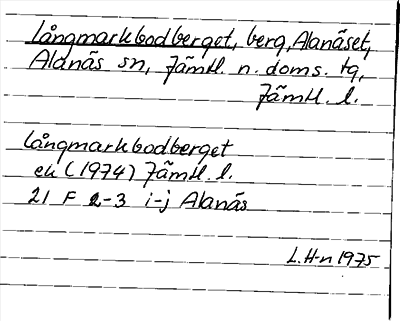 Långmarkbodberget, berg, Alanäset,
Alanäs sn, Jämtl. n. doms. tg,
Jämtl. l.
Långmarkbodberget
ek (1974) Jämtl. l.
21 F 2-3 i-j Alanäs
L. H-n 1975